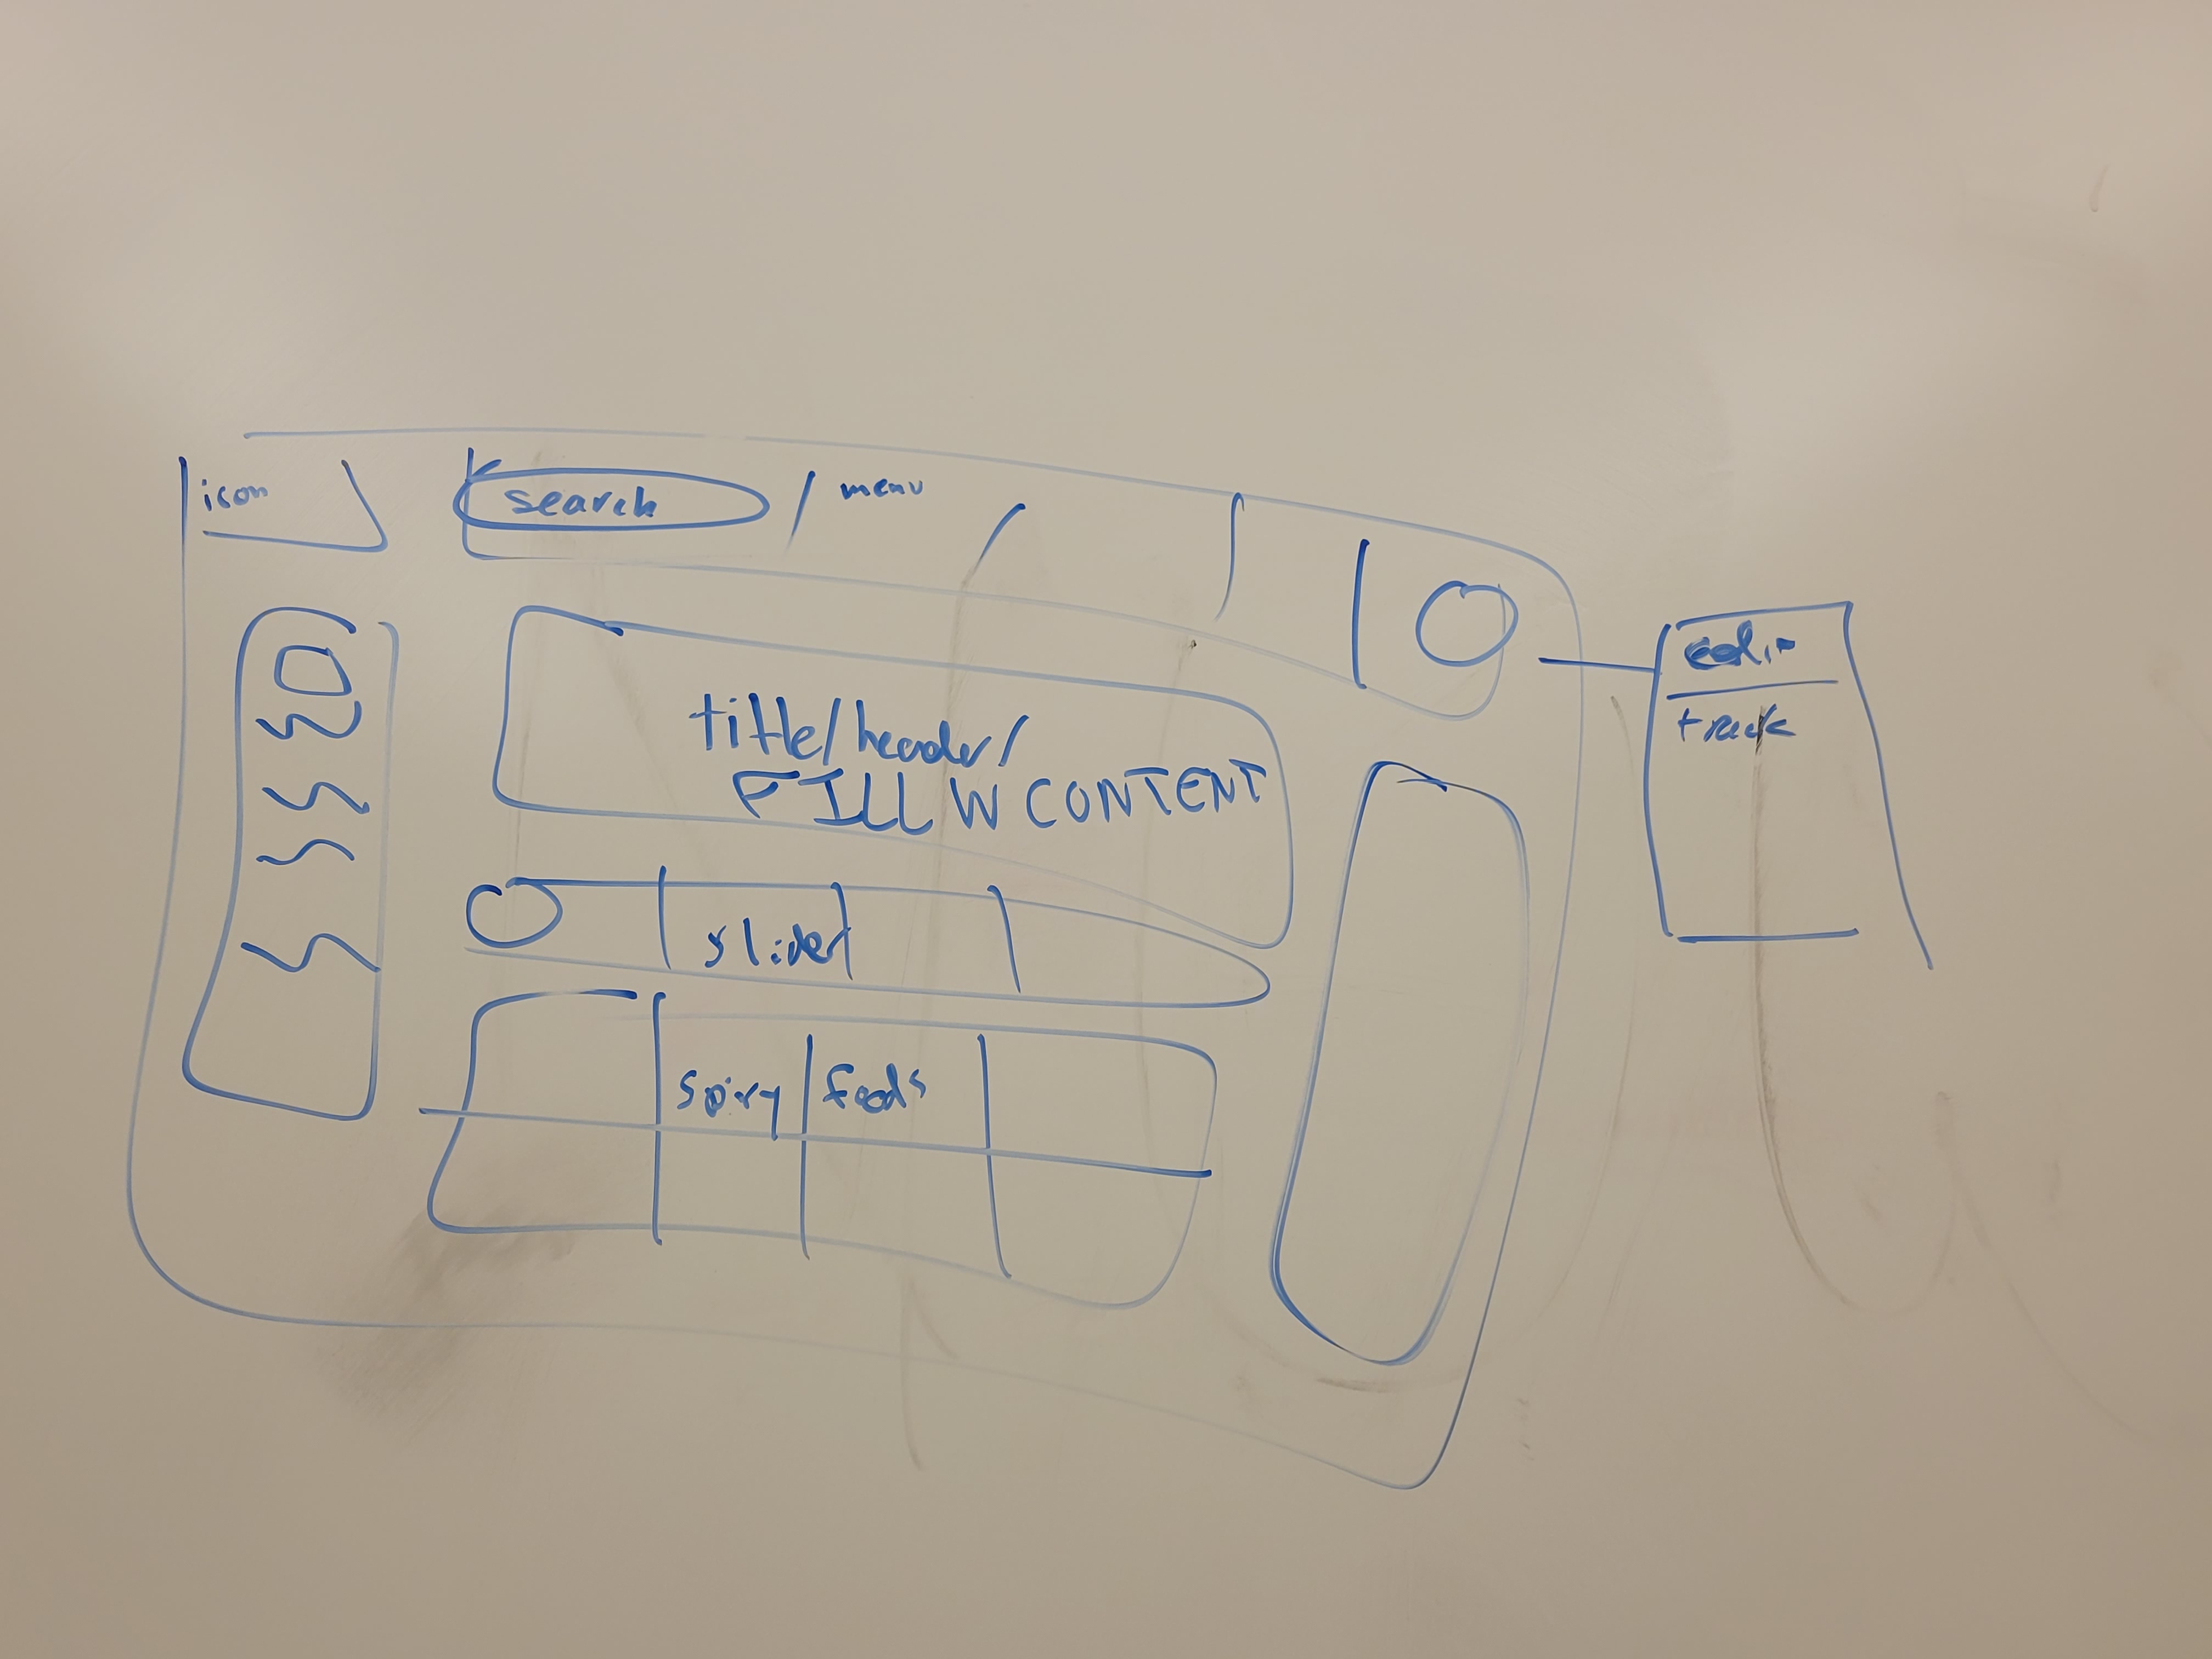 icon
search
menu
title/header/
FILL W CONTENT
slider
spicy foods
track